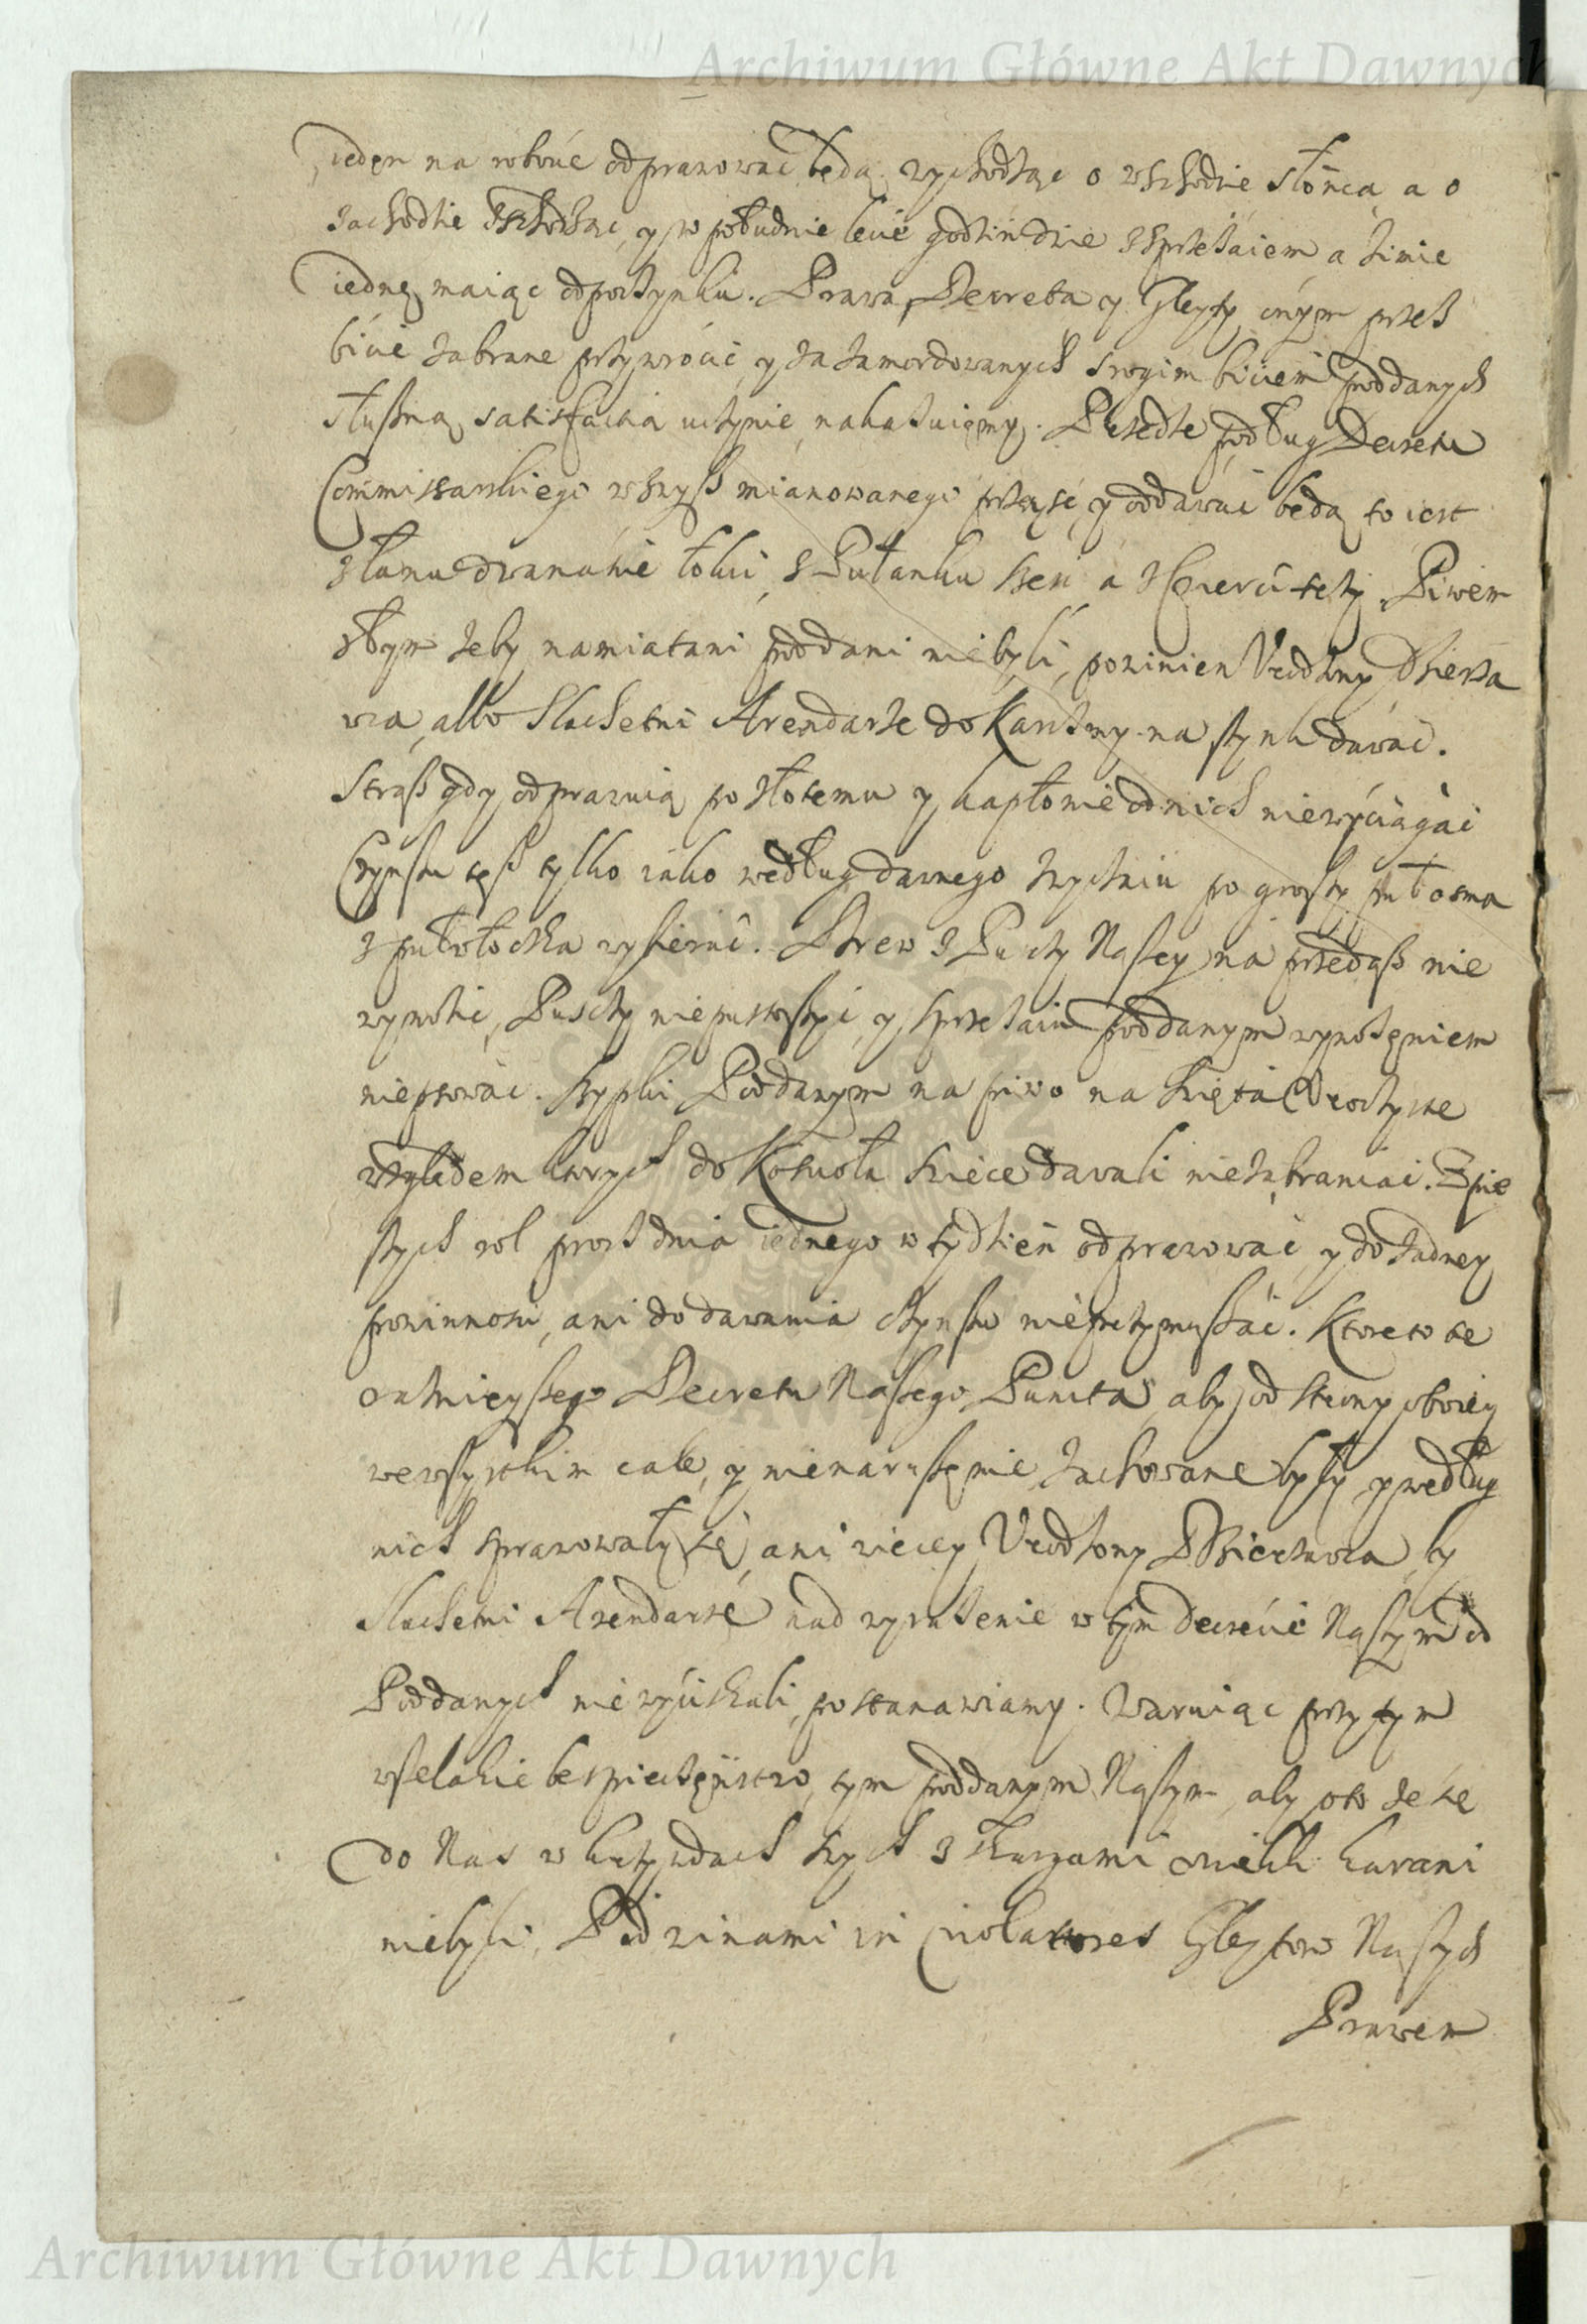 Archiwum Główne Akt Dawnych
ieden na robocie odprawować będą, wychodząc o wschodzie słońca, a o
zachodzie schodząc, y w południe lecie godzin dwie z sprzężaiem, a zimie
iednę maiąc odpoczynku. Prawa, Decreta y Gleyty inszym przez
bicie zabrane przywrócić, y za zamordowanych srogim biciem poddanych
słuszną satisfactią uczynić nakazuiemy. Przędze podług Decretu
Commissarskiego wzwysz mianowanego prząść, y oddawać będą to iest
z łanu dwanaście łokci, z Pułanku sześć a z Cwierci trzy. Piwem
złym żeby namiatani poddani niebyli, powinien Urodzony Dzierża
wca, albo Slachetni Arendarze do Karczmy na szynk dawać.
Straż gdy odprawuią po złotemu y kapłonie od nich niewyciągać
Czynszu tesz tylko iako według dawnego zwyczaiu po groszy pułosma
z pułwłoczka wybierać. Drew z Puszczy Naszey na przedasz nie
wywozić, Puszczy niepustoszyć, y sprzężaiu poddanym wywożeniem
niepsować. Sypki Poddanym na piwo na Swięta Uroczyste
względem ktorych do Kościoła swiece dawali niezabraniać. Z pu
stych rol prosz dnia iednego w tydzień odprawować, y do żadney
powinności, ani do dawania czynszu nieprzymuszać. Ktore to se
ninieyszego Decretu Naszego Puncta, aby od strony oboiey
we wszystkim cale, y nienaruszenie zachowane były, y według
nich sprawowały się, ani więcey Urodzony Dzierżawca, ty
Slachetni Arendarze nad wyrażenie w tym decrecie Naszym od
Poddanych niewyciskali, postanawiamy. Waruiąc przy tym
wszelakie bespieczeństwo, tym poddanym Naszym, aby oto że się
do Nas w krzywdach swych z skargami uciekli karani
niebyli, Pod winami in violatores Gleytow Naszych
Prawem
Archiwum Główne Akt Dawnych